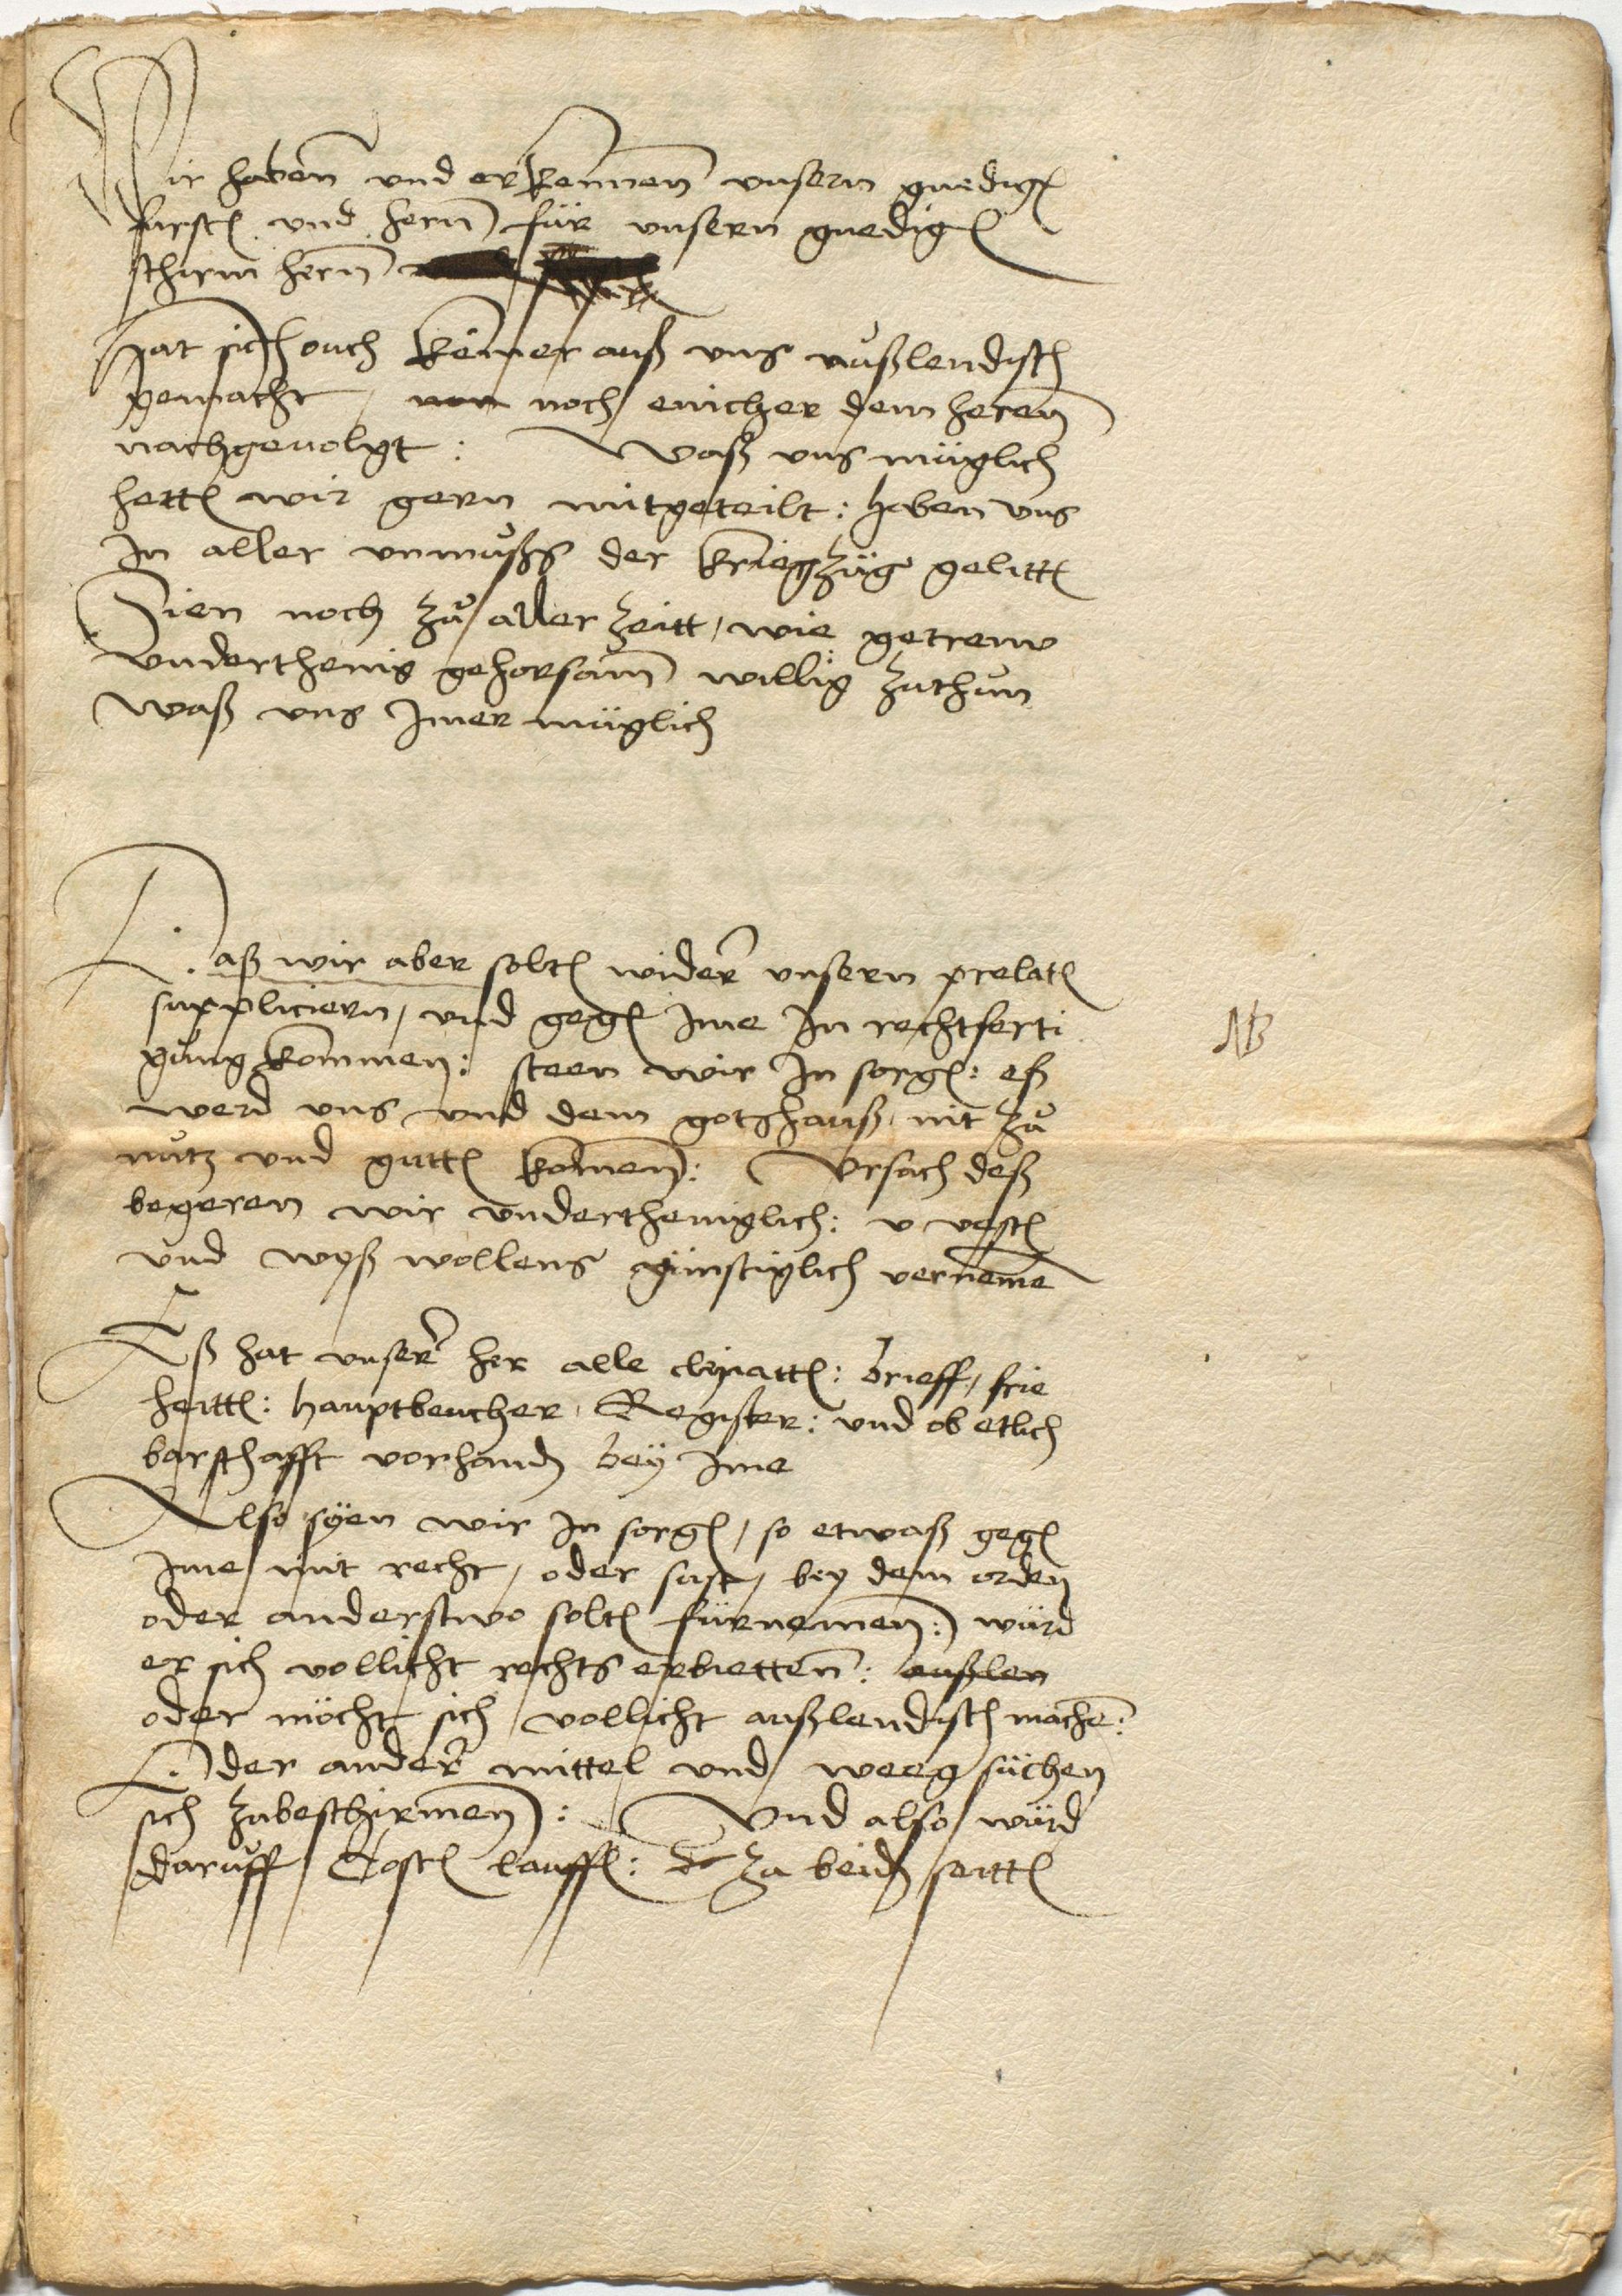 Wir haben und erkennen unsern gnedigen
fursten und hern für unsern gnedigen
schirm hern
Hat sich ouch keiner auß uns außlendisch
gemacht / noch einicher dem heren
nachgevolgt : Waß uns müglich
hetten wir gern mitgeteilt : haben uns
In aller unmuß der kriegzüg gelitten
Sien noch zů aller zeitt / wie getrew
underthenig gehorsam willig zuthun
Waß uns Imer müglich
Daß wir aber solten wider unsern prelaten
suppliciern / und gegen Ime In rechtferti
gung kommen : steen wir In sorgen : eß
werd uns und dem gotshauß nit zů
nutz und gutten komen : Ursach deß
begeren wir undertheniglich : v vesten
und wyß wollens günstiglich verneme
Eß hat unser her alle cleinatten : brieff / frie
heitten : hauptbeucher / Register : und ob etlich
barschafft vorhanden bey Ime
Also syen wir In sorgen / so etwaß gegen
Ime mit recht / oder sust / bey dem orden
oder anderstwo solten fürnemen : würd
er sich vollicht rechts erbietten : außlen
oder möcht sich vollicht außlendisch machen :
Oder ander mittel und weeg süchen
sich zubeschirmen : Und also würd
daruff Costen lauffen : zu beiden seitten
NB